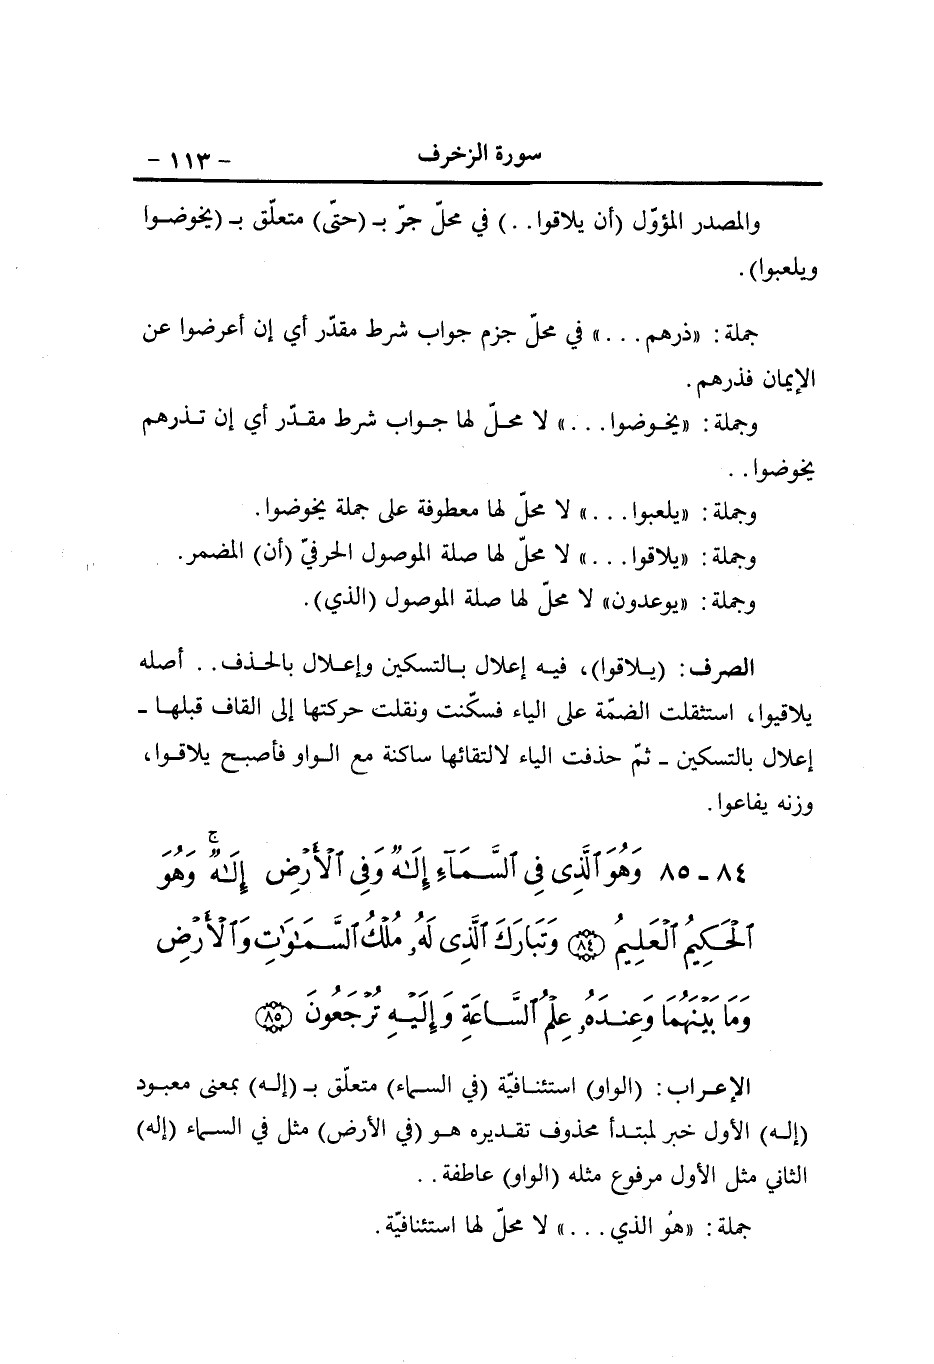 سورة الزخرف - ١١٣ -
والمصدر المؤوّل (أن يلاقوا..) في محلّ جرّ بـ (حتّى) متعلّق بـ (يخوضوا
ويلعبوا).
جملة: «ذرهم...» في محلّ جزم جواب شرط مقدّر أي إن أعرضوا عن
الإيمان فذرهم.
وجملة: «يخوضوا...» لا محلّ لها جواب شرط مقدّر أي إن تذرهم
يخوضوا..
وجملة: «يلعبوا...» لا محلّ لها معطوفة على جملة يخوضوا.
وجملة: «يلاقوا...» لا محلّ لها صلة الموصول الحرفيّ (أن) المضمر.
وجملة: «يوعدون» لا محلّ لها صلة الموصول (الذي).
الصرف: (يلاقوا)، فيه إعلال بالتسكين وإعلال بالحذف.. أصله
يلاقيوا، استثقلت الضمّة على الياء فسكّنت ونقلت حركتها إلى القاف قبلها -
إعلال بالتسكين - ثمّ حذفت الياء لالتقائها ساكنة مع الواو فأصبح يلاقوا،
وزنه يفاعوا.
٨٤ - ٨٥ وَهُوَ ٱلَّذِى فِى ٱلسَّمَآءِ إِلَٰهٌ وَفِى ٱلْأَرْضِ إِلَٰهٌ ۚ وَهُوَ
ٱلْحَكِيمُ ٱلْعَلِيمُ ﴿٨٤﴾ وَتَبَارَكَ ٱلَّذِى لَهُۥ مُلْكُ ٱلسَّمَٰوَٰتِ وَٱلْأَرْضِ
وَمَا بَيْنَهُمَا وَعِندَهُۥ عِلْمُ ٱلسَّاعَةِ وَإِلَيْهِ تُرْجَعُونَ ﴿٨٥﴾
الإعراب: (الواو) استئنافيّة (في السماء) متعلّق بـ (إله) بمعنى معبود
(إله) الأول خبر لمبتدأ محذوف تقديره هو (في الأرض) مثل في السماء (إله)
الثاني مثل الأول مرفوع مثله (الواو) عاطفة..
جملة: «هو الذي...» لا محلّ لها استئنافيّة.